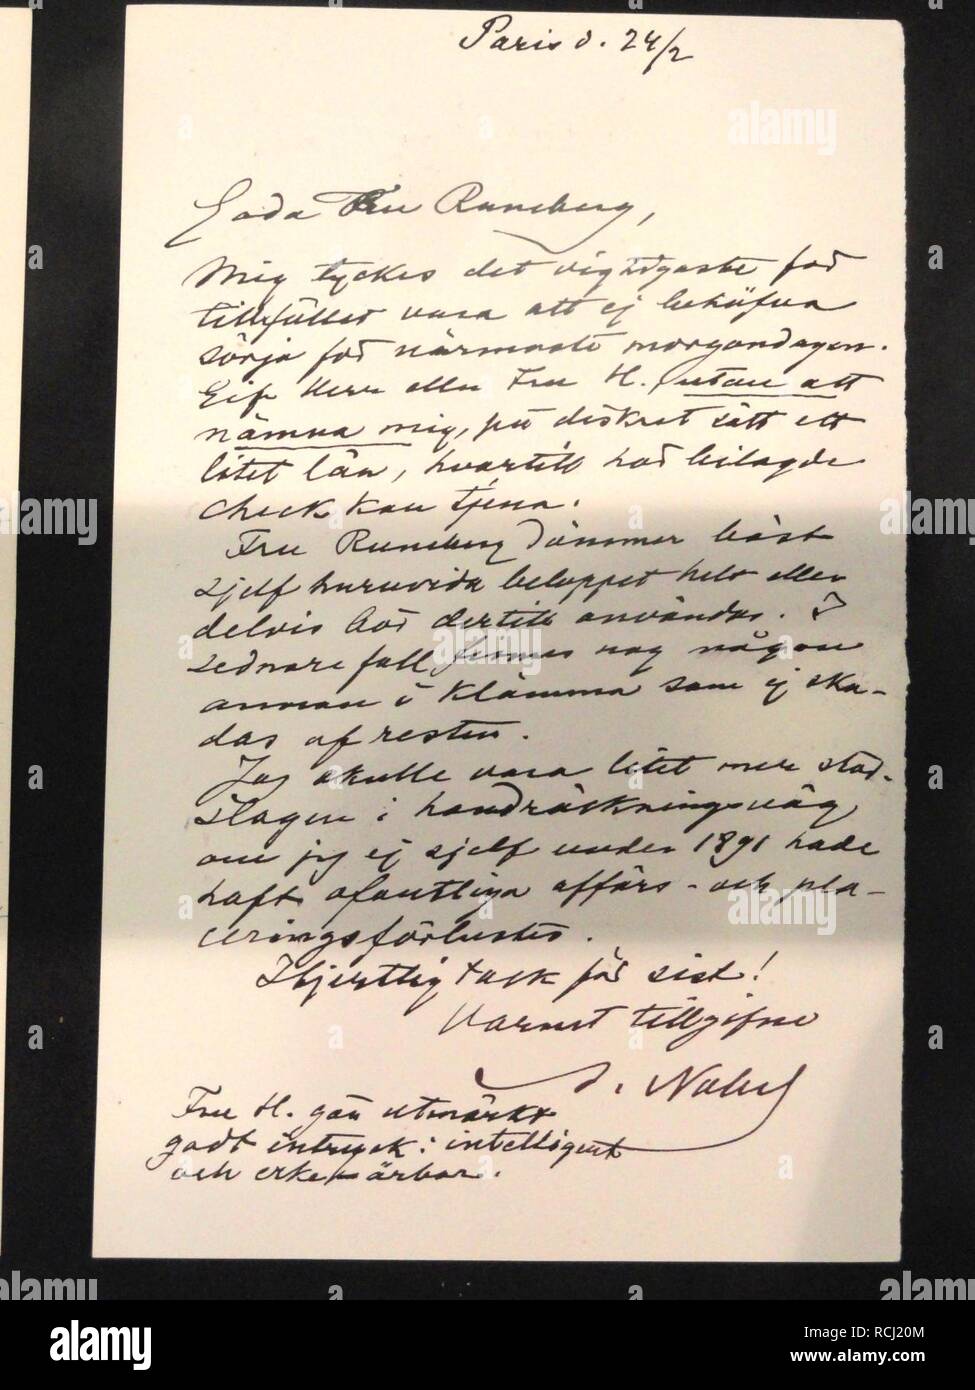 Paris d. 24/2
Goda Fru Runeberg,
Mig tyckes det vigtigaste för
tillfället vara att ej behöfva
sörja för närmaste morgondagen.
Gif Herr eller Fru H. utan att
nämna mig, på diskret sätt ett
litet lån, hvartill här bilagde
check kan tjena.
Fru Runeberg dömmer bäst
sjelf huruvida beloppet helt eller
delvis bör dertill användas. I
sednare fall finnes nog någon
annan i klämma som ej ska-
das af resten.
Jag skulle vara litet mer stor-
slagen i handräckningsväg
om jag ej sjelf under 1891 hade
haft ofantliga affärs- och pla-
ceringsförluster.
Hjertlig tack för sist!
Varmt tillgifne
A. Nobel
Fru H. gör utmärkt
godt intryck: intelligent
och erkehärbar.
alamy
Image ID: RCJ20M
www.alamy.com